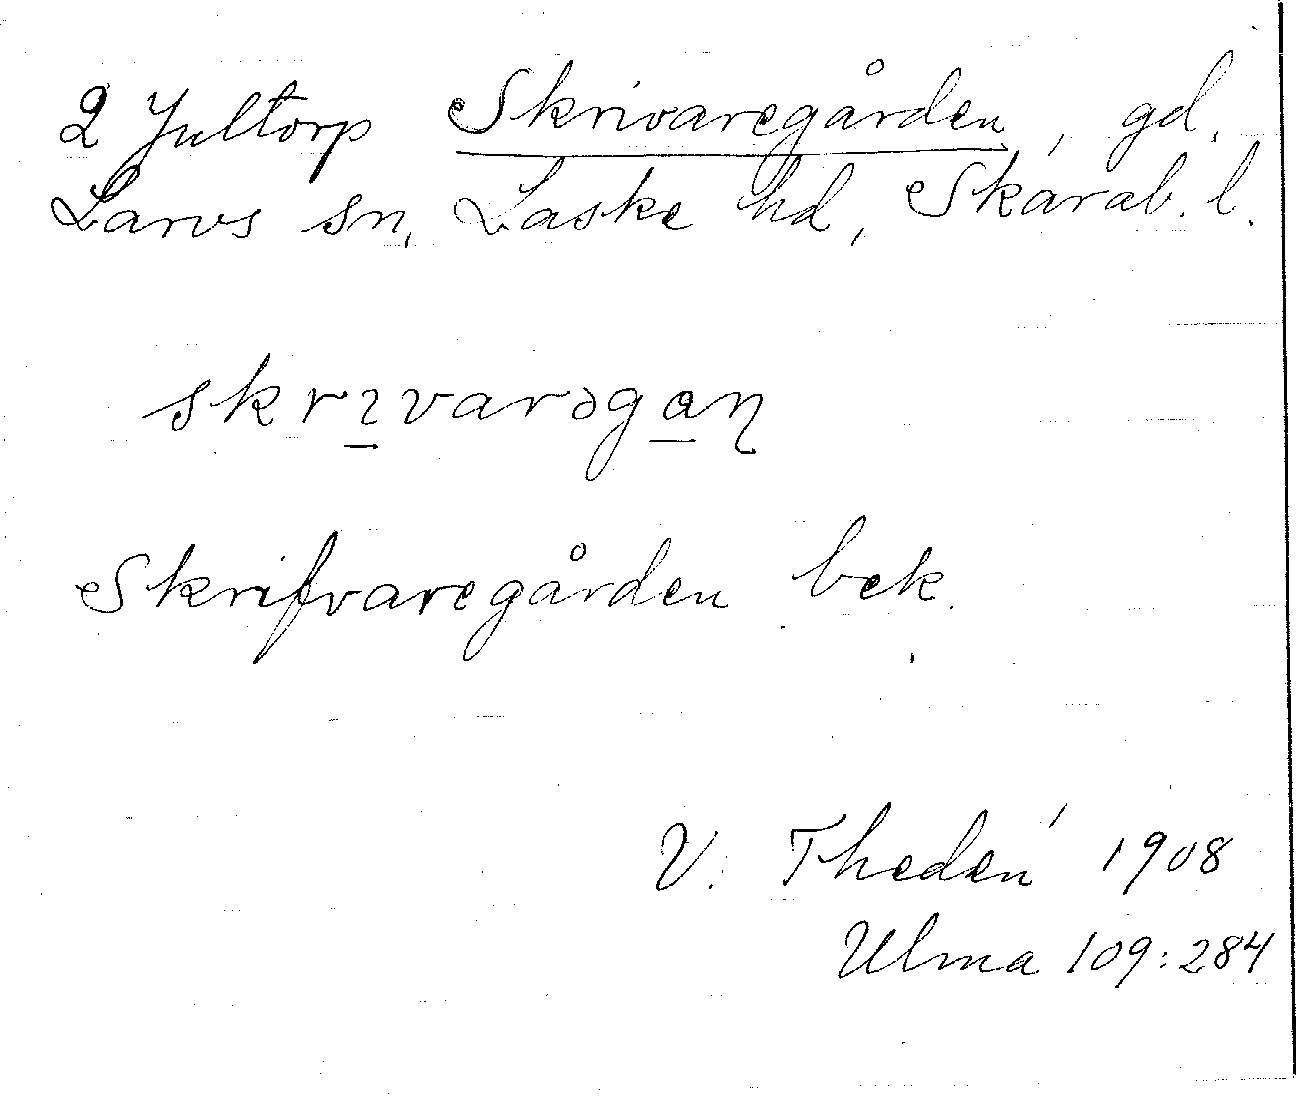 2 Jultorp Skrivaregården, gd.
Larvs sn, Laske hd, Skarab. l.
skrɿvarəgaɳ
Skrifvaregården bek.
V. Thedén 1908
Ulma 109:284